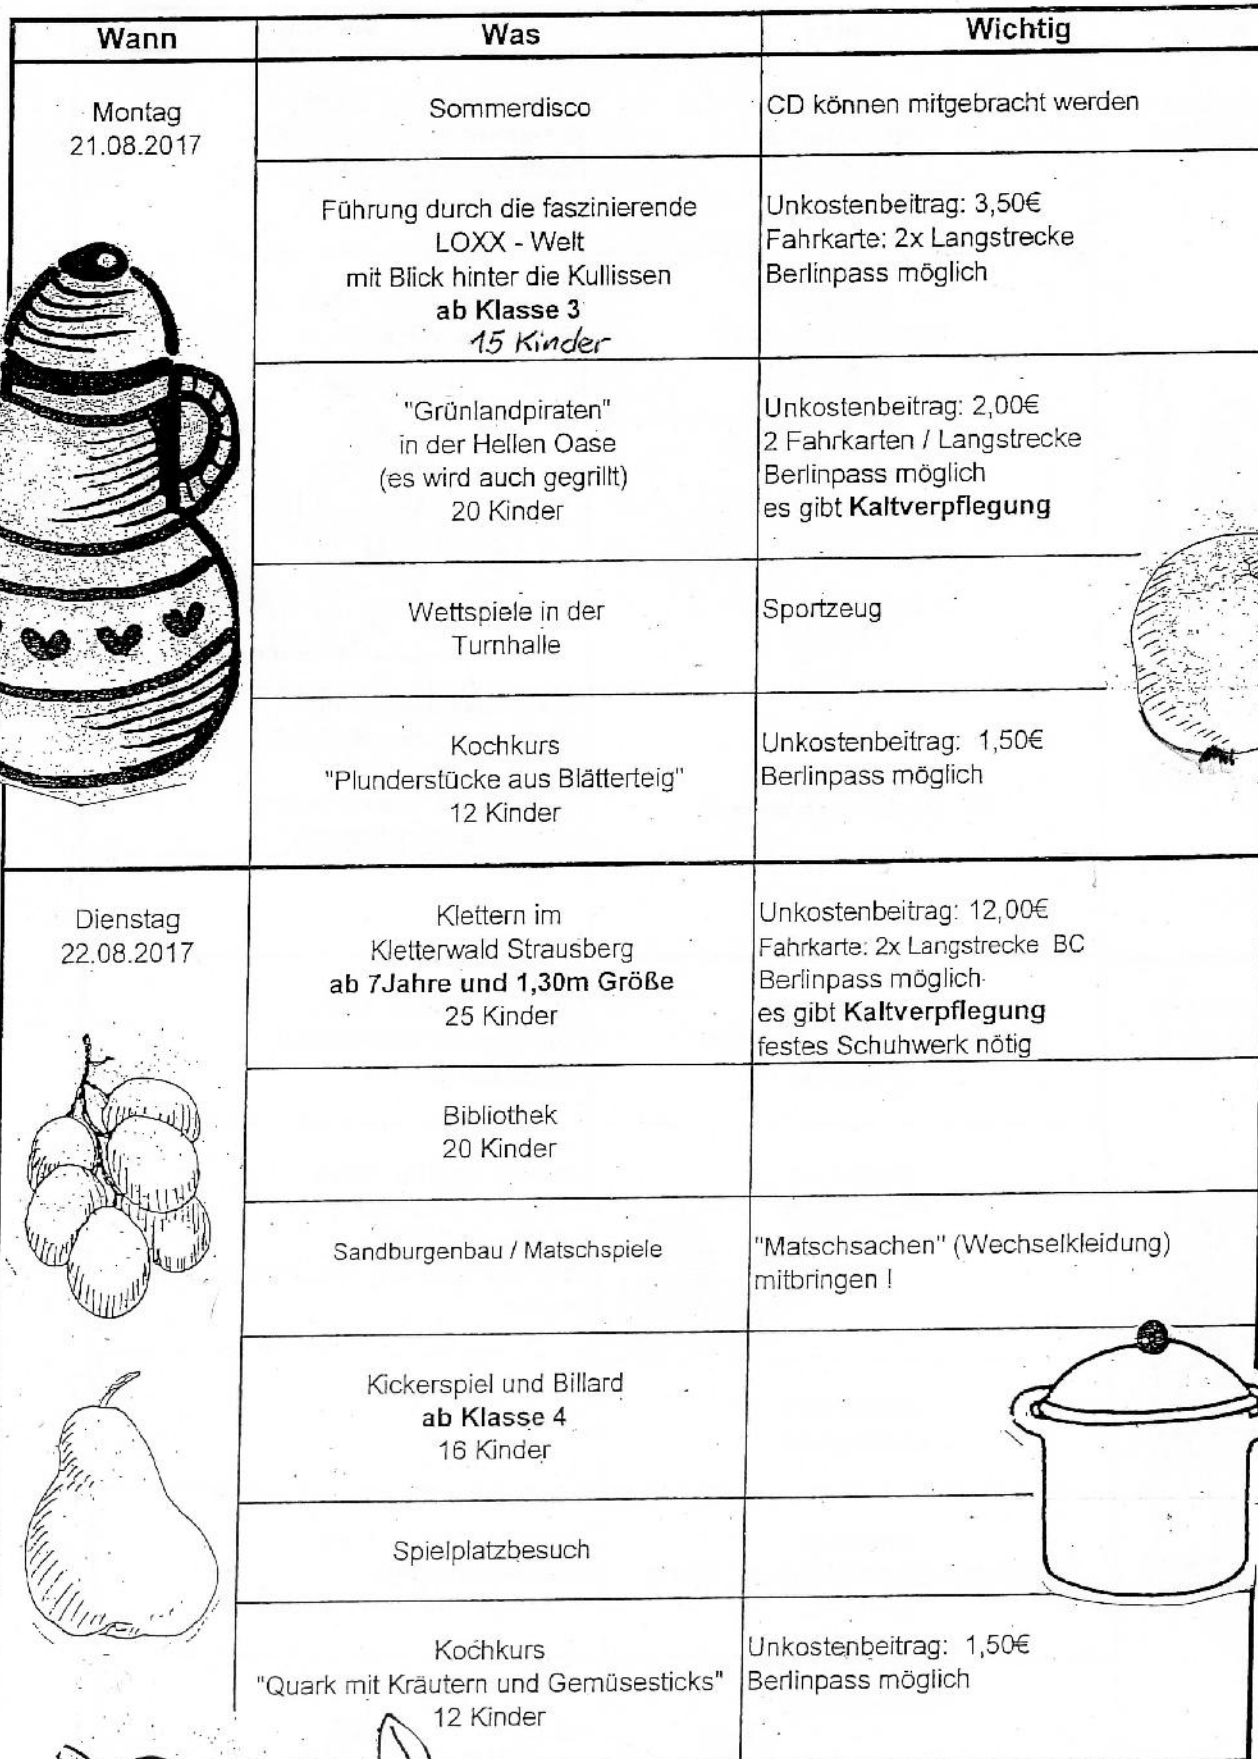 Wann Was Wichtig
Montag
21.08.2017
Sommerdisco
CD können mitgebracht werden
Führung durch die faszinierende
LOXX - Welt
mit Blick hinter die Kullissen
ab Klasse 3
15 Kinder
Unkostenbeitrag: 3,50€
Fahrkarte: 2x Langstrecke
Berlinpass möglich
"Grünlandpiraten"
in der Hellen Oase
(es wird auch gegrillt)
20 Kinder
Unkostenbeitrag: 2,00€
2 Fahrkarten / Langstrecke
Berlinpass möglich
es gibt Kaltverpflegung
Wettspiele in der
Turnhalle
Sportzeug
Kochkurs
"Plunderstücke aus Blätterteig"
12 Kinder
Unkostenbeitrag: 1,50€
Berlinpass möglich
Dienstag
22.08.2017
Klettern im
Kletterwald Strausberg
ab 7Jahre und 1,30m Größe
25 Kinder
Unkostenbeitrag: 12,00€
Fahrkarte: 2x Langstrecke BC
Berlinpass möglich
es gibt Kaltverpflegung
festes Schuhwerk nötig
Bibliothek
20 Kinder
Sandburgenbau / Matschspiele
"Matschsachen" (Wechselkleidung)
mitbringen !
Kickerspiel und Billard
ab Klasse 4
16 Kinder
Spielplatzbesuch
Kochkurs
"Quark mit Kräutern und Gemüsesticks"
12 Kinder
Unkostenbeitrag: 1,50€
Berlinpass möglich